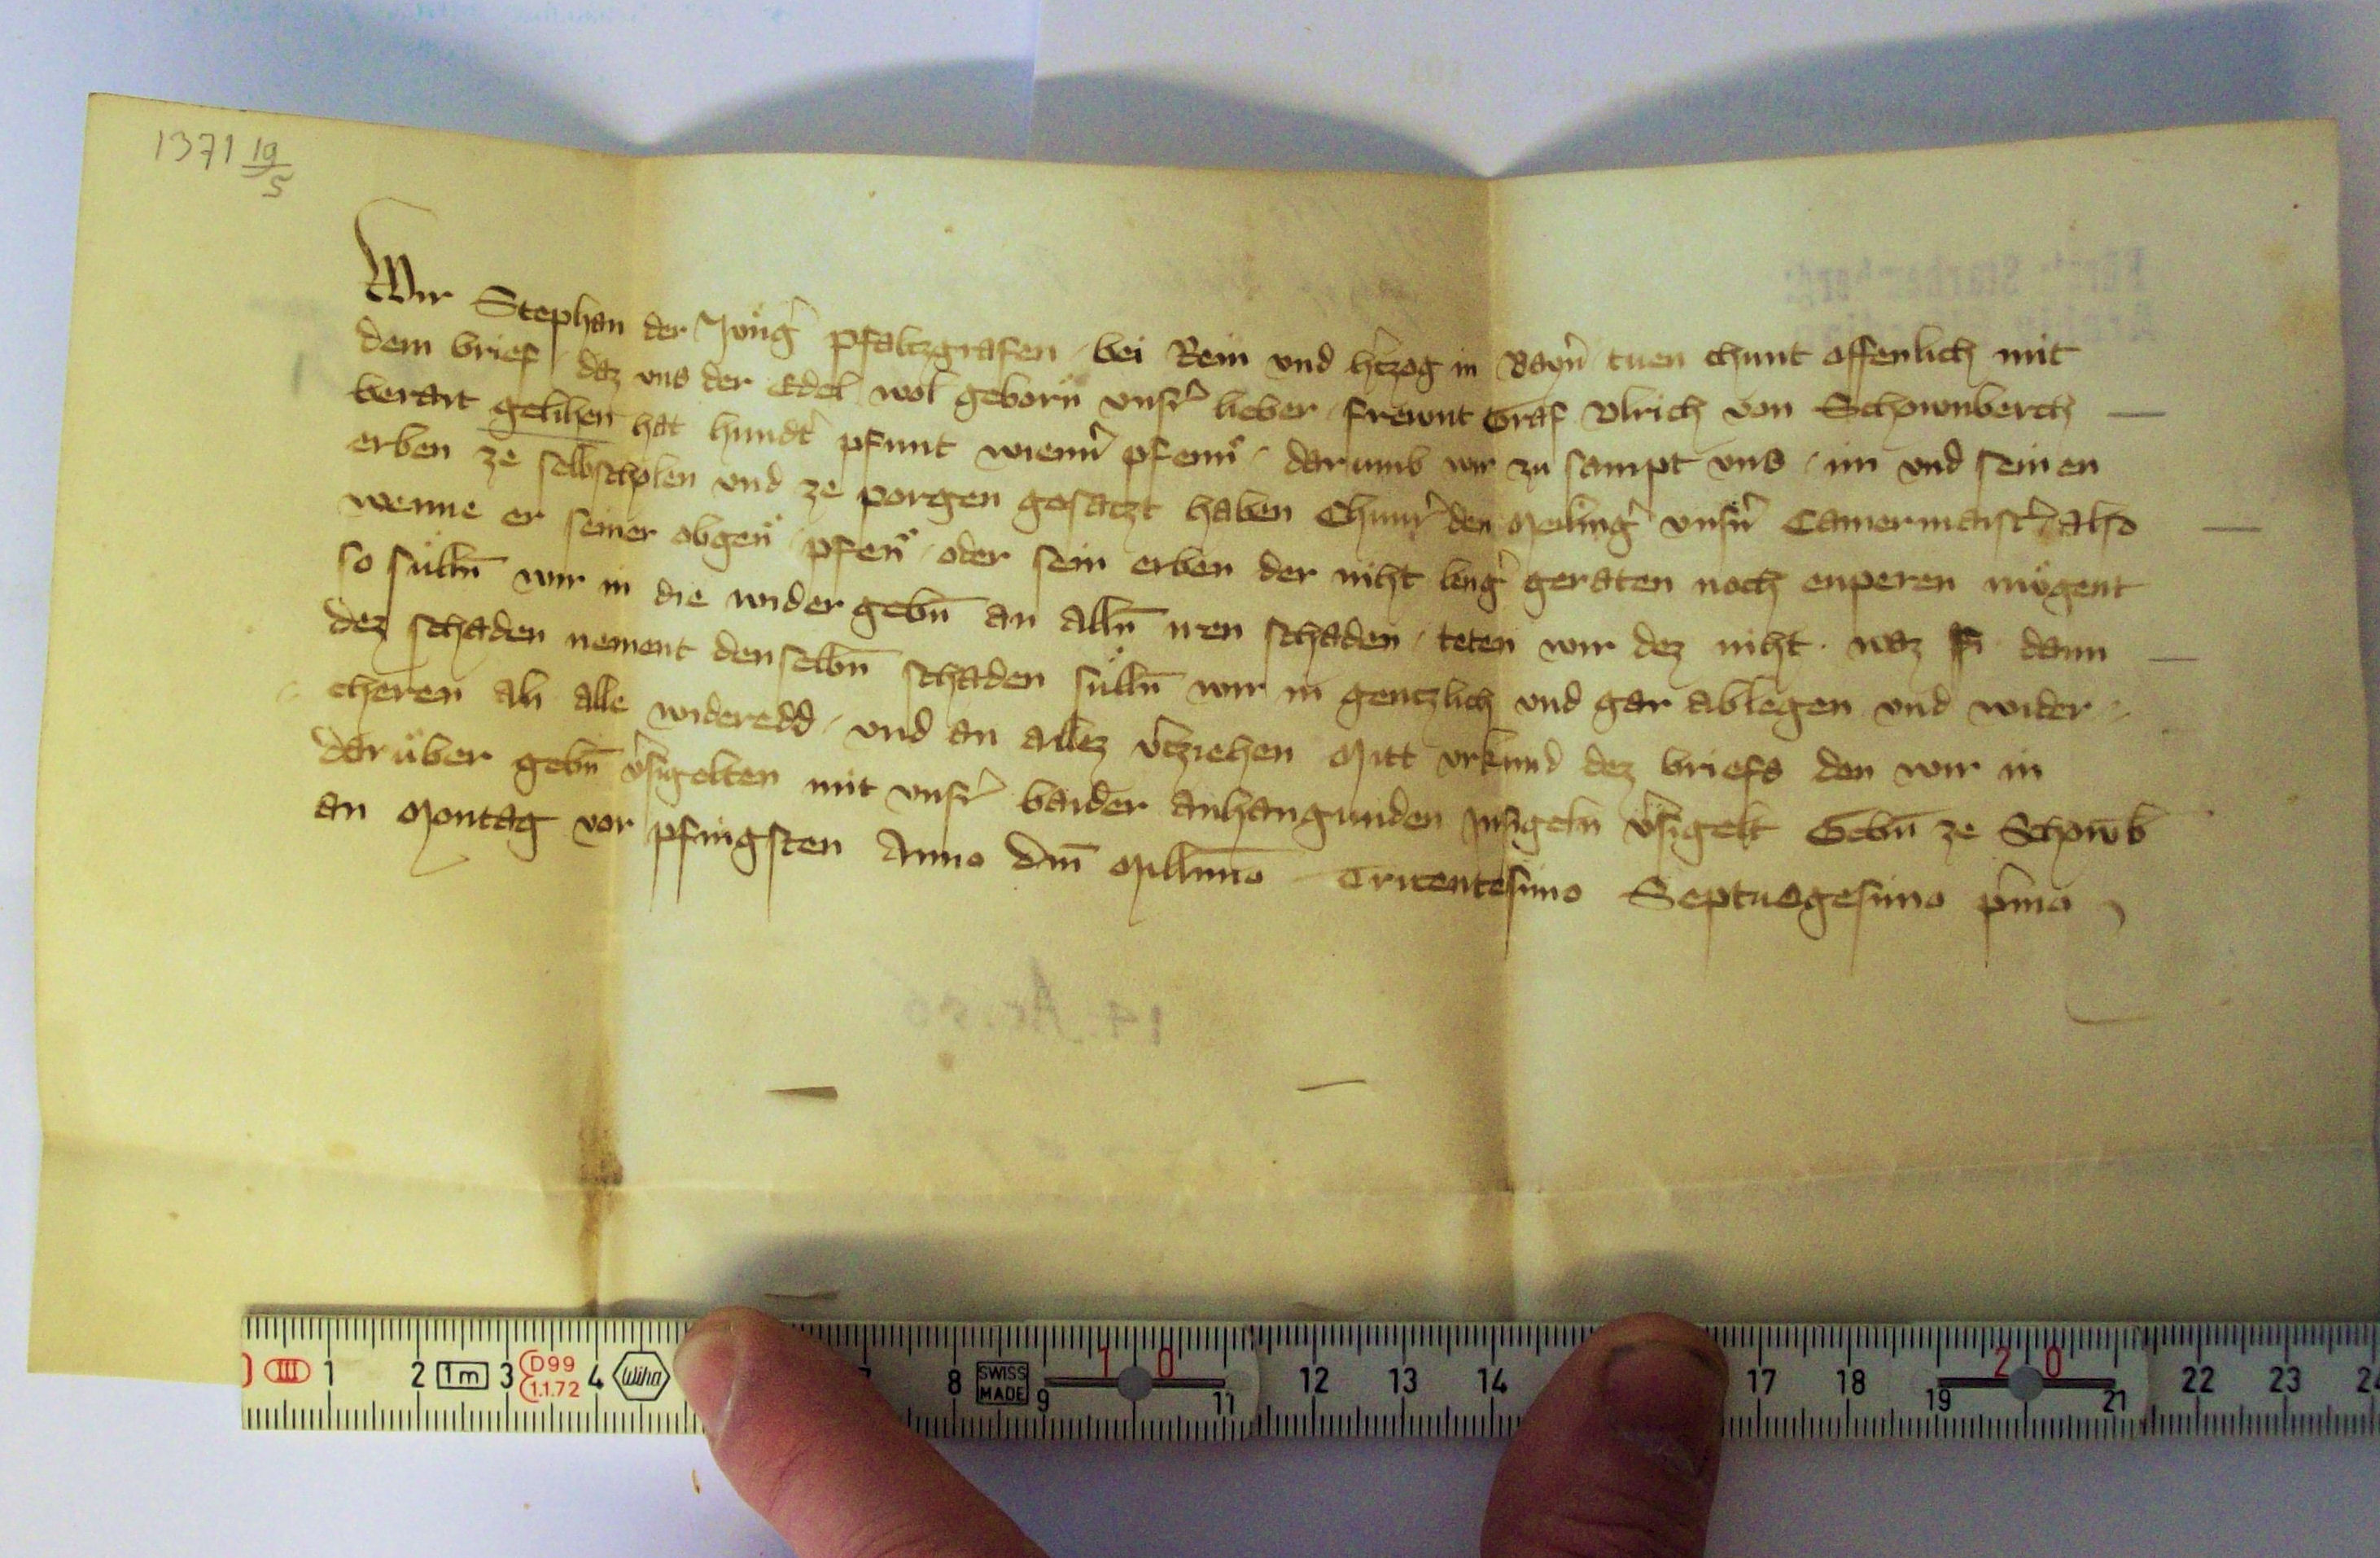 1371 19/5
Wir Stephan der Jo͛ng͛ pfaltzgrafen bei Rein und h͛tzog in Bayn͛ tuen chunt offenlich mit
dem brief daz vns der Edel wol geborn͛ vnsr͛ lieber frewnt Graf Vlrich von Schownberch
berait gelihen hat hundt͛ pfunt wienn͛ pfenn͛ darumb wir zu sampt vns im und seinen
erben ze selbscholen und ze porgen gesatzt haben Chunr͛ den vnsn͛ Camermaist͛ also
wenne er seiner obgen͛ pfen͛ oder sein erben der niht leng͛ geraten noch enperen mo͛gent
so su͛lln̄ wir in die wider gebn̄ an alln̄ iren schaden teten wir dez niht waz si dann
dez schaden nement denselbn̄ schaden su͛lln̄ wir in gentzlich und gar ablegen und wider
cheren an alle wideredd und an allez v͛tziehen Mitt vrkund dez briefs den wir in
daru͛ber gebn̄ v͛sigelten mit vnsr͛ baider anhangunden Insigeln v͛sigelt Gebn̄ ze Schow̄b
an Montag vor pfingsten Anno Dm̄ Millm̄o Tricentesimo Septuagesimo p͛mo
III 1 2 1m 3 D99 1.1.72 4 wiha 7 8 SWISS MADE 9 10 11 12 13 14 17 18 19 20 21 22 23